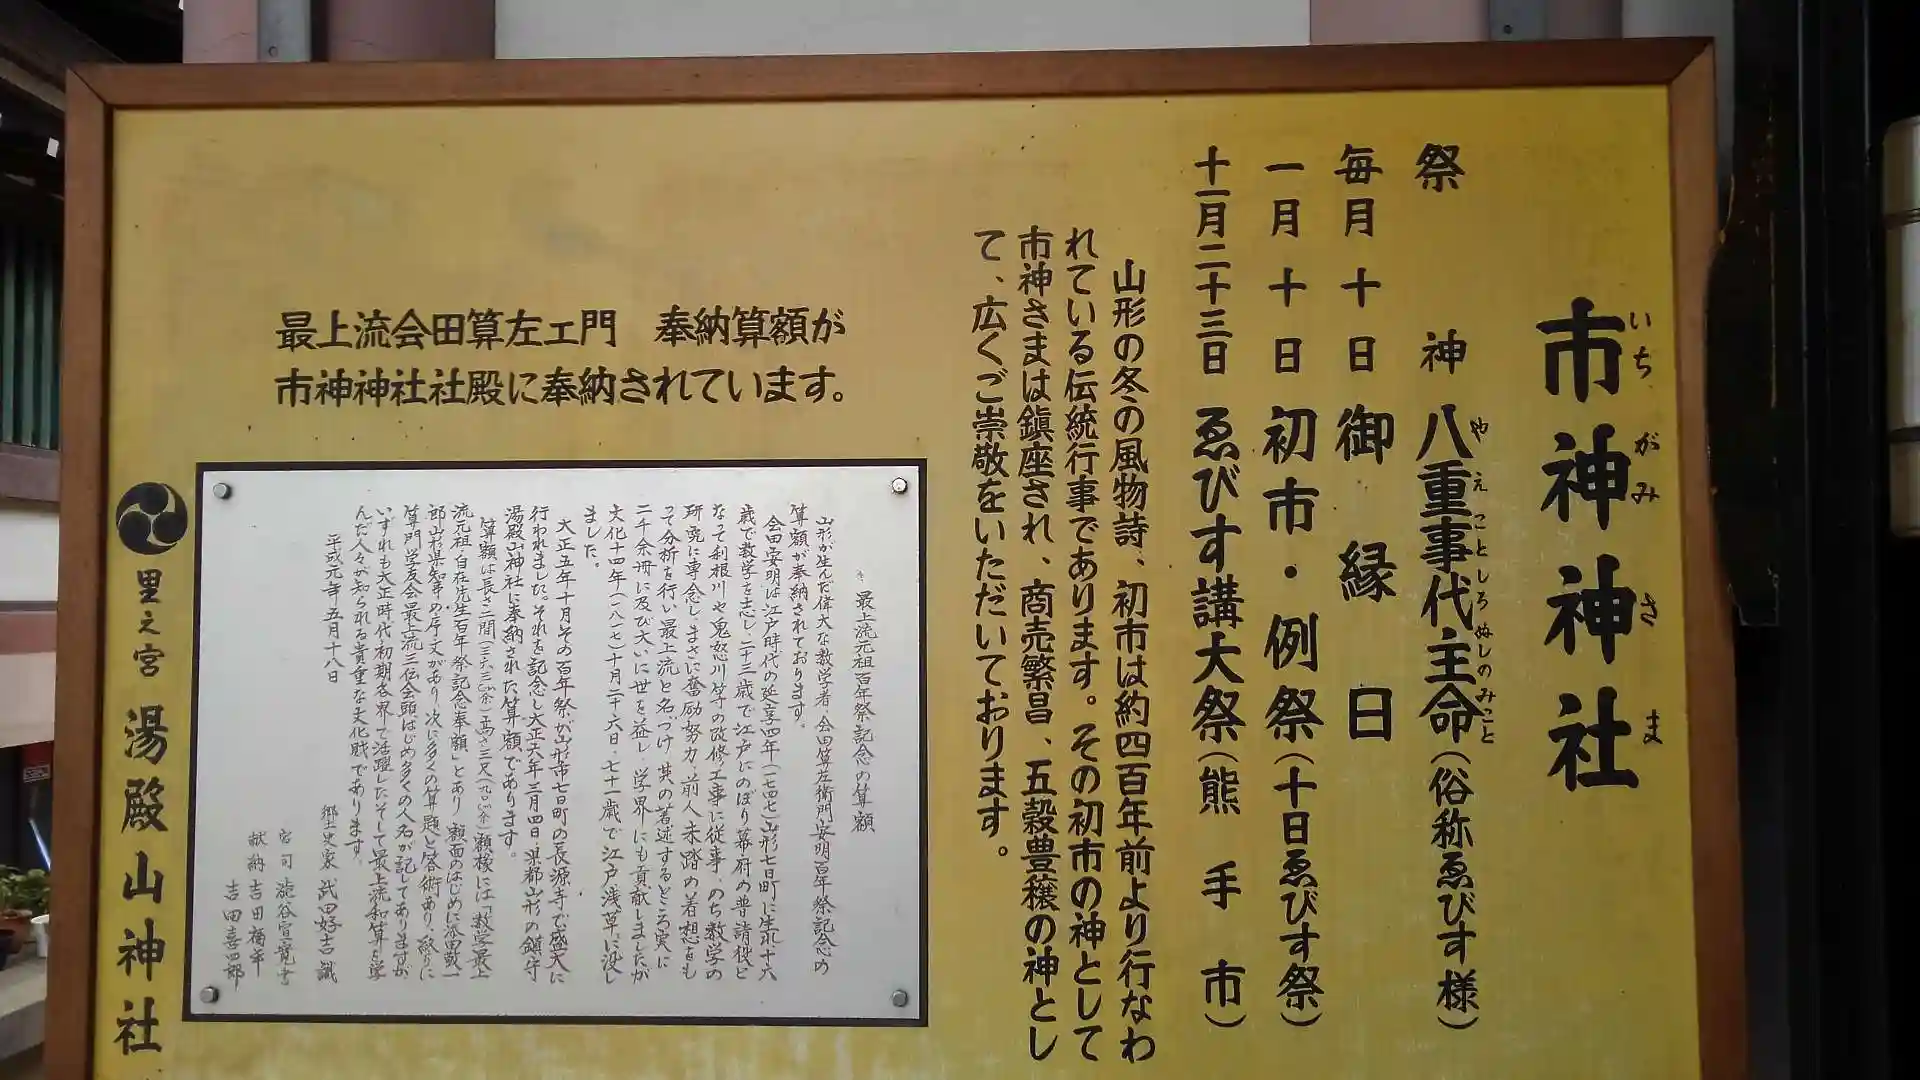 市神神社
いち がみ さ ま
祭神 八重事代主命(俗称ゑびす様)
や え こと しろ ぬしのみこと
毎月十日 御縁日
一月十日 初市・例祭(十日ゑびす祭)
十一月二十三日 ゑびす講大祭(熊手市)
山形の冬の風物詩、初市は約四百年前より行なわ
れている伝統行事であります。その初市の神として
市神さまは鎮座され、商売繁昌、五穀豊穣の神とし
て、広くご崇敬をいただいております。
最上流会田算左エ門 奉納算額が
市神神社社殿に奉納されています。
最上流元祖百年祭記念の算額
山形が生んだ偉大な数学者、会田算左衛門安明百年祭記念の
算額が奉納されております。
会田安明は江戸時代の延享四年(一七四七)山形七日町に生れ十六
歳で数学を志し、二十三歳で江戸にのぼり幕府の普請役と
なって利根川や鬼怒川等の改修工事に従事、のち数学の
研究に専念し、まさに奮励努力、前人未踏の着想をも
って分析を行い最上流と名づけ、其の著述するところ実に
二千余冊に及び大いに世を益し、学界にも貢献しましたが
文化十四年(一八一七)十月二十六日、七十一歳で江戸浅草に没し
ました。
大正五年十月その百年祭が山形市七日町の長源寺で盛大に
行われました。それを記念し大正六年三月四日、県都山形の鎮守
湯殿山神社に奉納された算額であります。
算額は長さ二間(三六三㎝余)高さ三尺(九〇㎝余)額検には「数学最上
流元祖・自在先生百年祭記念奉額」とあり 額面のはじめに添田敬一
郎山形県知事の序文があり、次に多くの算題と答術あり、終りに
算門学友会最上流三伝会頭はじめ多くの人名が記してありますが
いずれも大正時代初期各界で活躍したそして最上流和算を学
んだ人々が知られる貴重な文化財であります。
平成元年 五月十八日
郷土史家 武田好吉 識
宮司 渋谷宣寛 書
献納 吉田福平
吉田喜四郎
里之宮 湯殿山神社